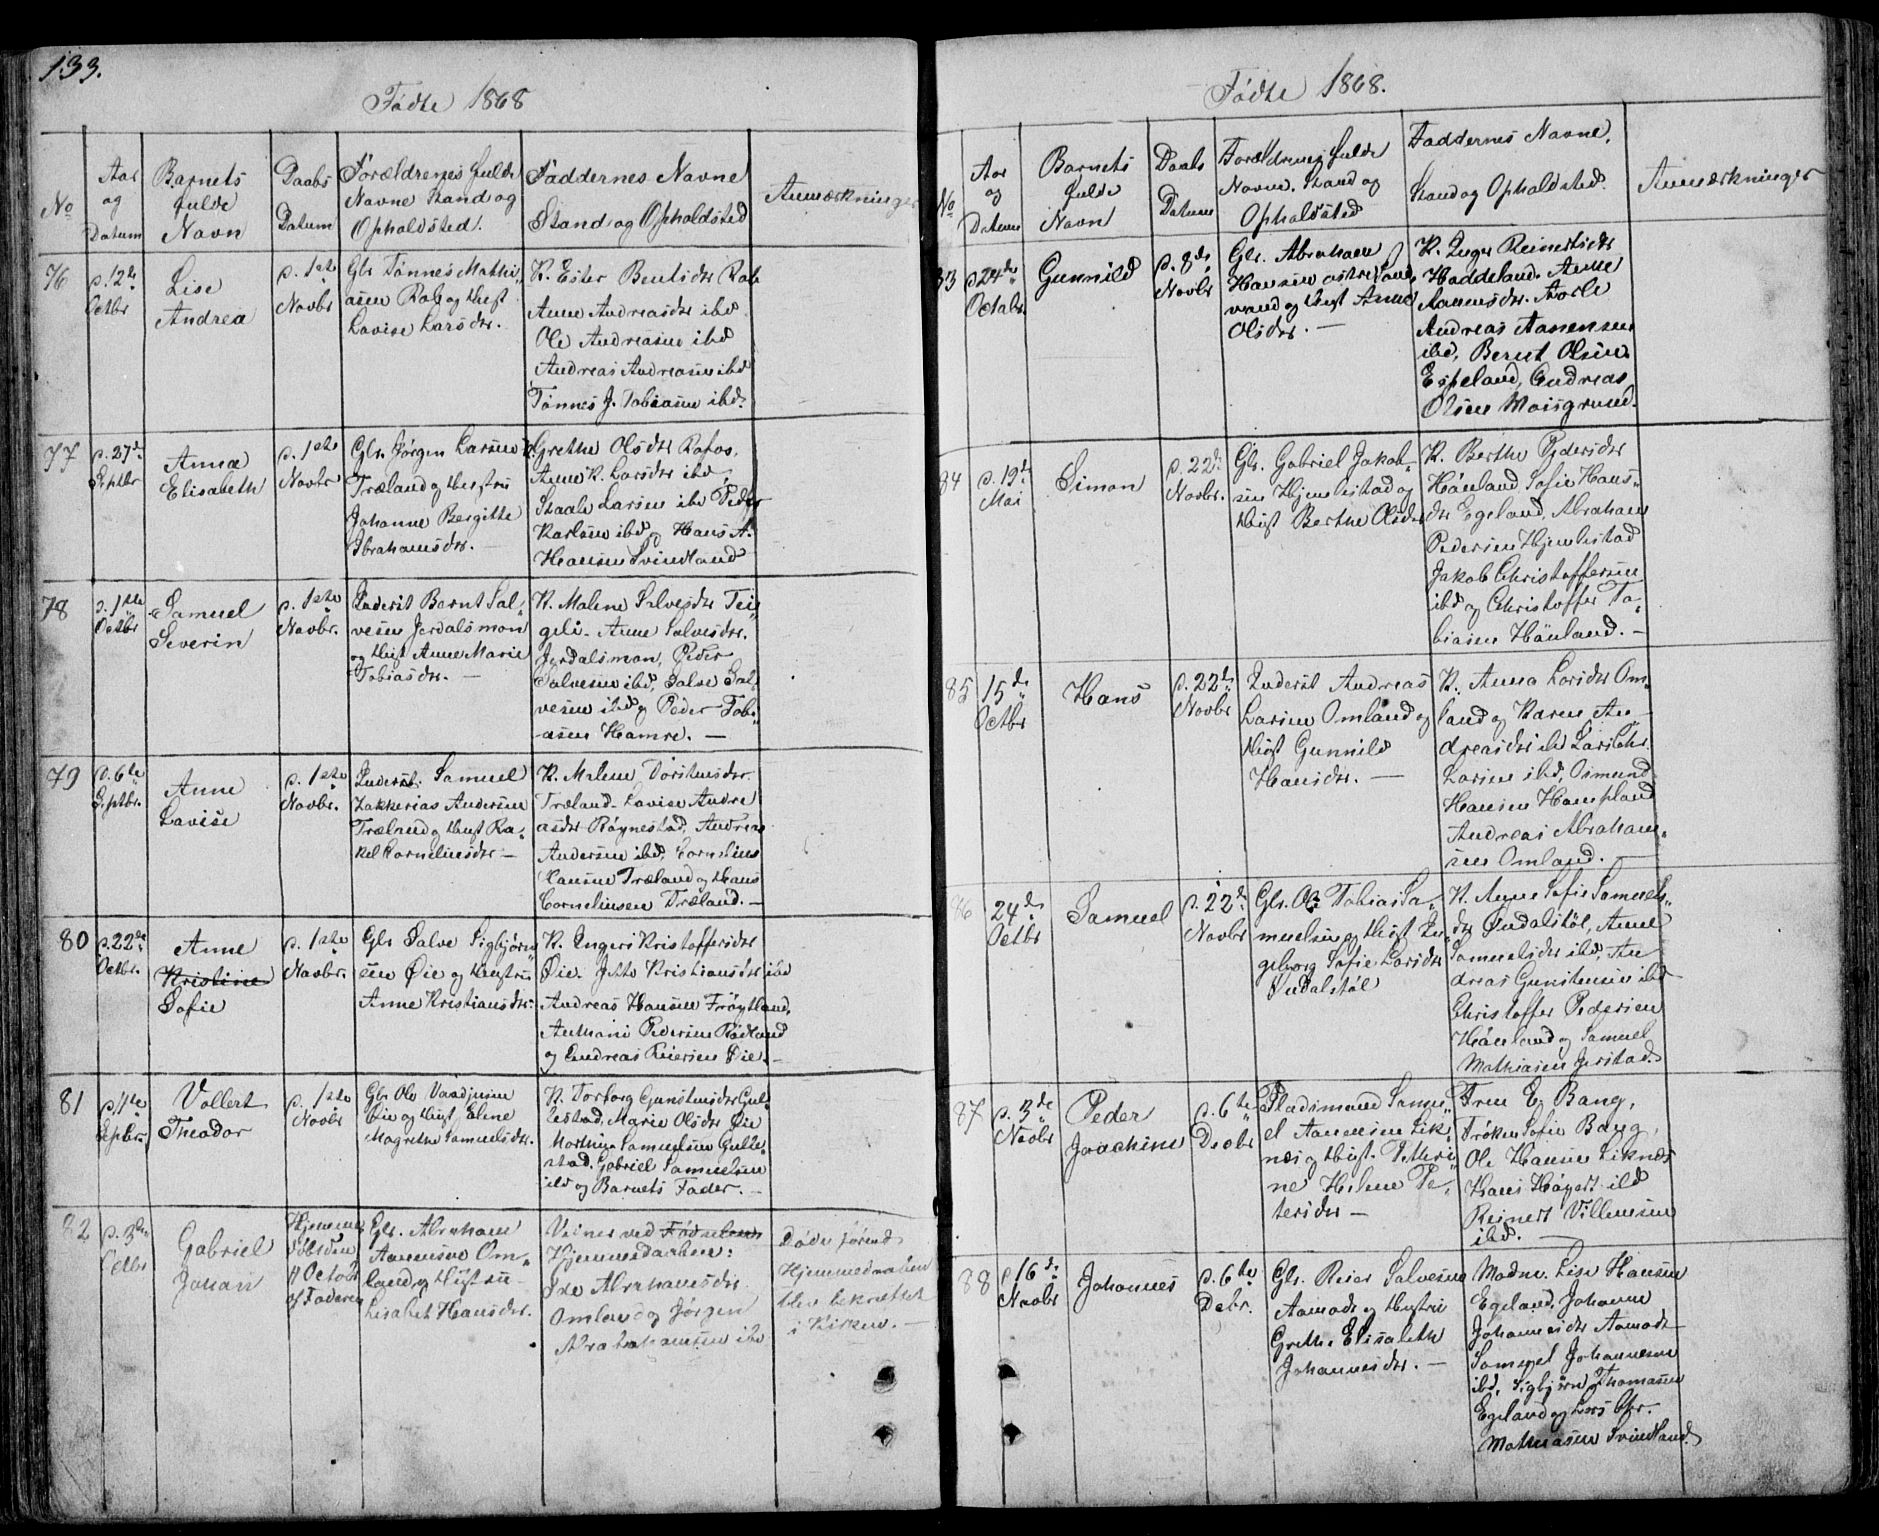 133.
Fødte 1868
No
Aar
og
Datum
Barnets
fulde
Navn
Daabs
Datum
Forældrenes fulde
Navne Stand og
Opholdsted.
Faddernes Navne
Stand og Opholdsted
Anmærkninger
76
d. 12te
Octbr
Lise
Andrea
d. 1ste
Novbr
Gbr Tønnes Mathi„
asen Rob og Hust
Lovise Larsdtr.
K. Ester Bentsdtr Rob
Anne Andreasdtr ibd
Ole Andreasen ibd
Andreas Andreasen ibd
Tønnes J. Tobiasen ibd.
77
d. 27de
Septbr
Anna
Elisabeth
d. 1ste
Novbr
Gbr. Jørgen Larsen
Træland og Hustru
Johanne Bergitte
Abrahamsdtr. —
Grethe Olsdtr Rafos,
Anne K. Larsdtr ibd,
Staale Larsen ibd Peder
Karlsen ibd og Hans A.
Hansen Svindland
78
d. 1ste
Octbr
Samuel
Severin
d. 1ste
Novbr.
Inderst Bernt Sal„
vesen Jerdalsmon
og Hust Anne Marie
Tobiasdtr. —
K. Malene Salvesdtr Tei„
geli. Anne Salvesdtr.
Jerdalsmon, Peder
Salvesen ibd, Salve Sal„
vesen ibd og Peder Tobi„
asen Hamre. —
79
d. 6te
Septbr.
Anne
Lavise
d. 1ste
Novbr.
Inderst. Samuel
Zakkerias Andersen
Træland og Hust Ra„
kel Cornelius dtr —
K. Malene Torstensdtr
Træland. Lavise Andre
asdtr Røynestad, Andreas
Andersen ibd, Cornelius
Hansen Træland og Hans
Corneliusen Træland. —
80
d. 22de
Octbr.
Anne
Kristine
Sofie
d. 1ste
Novbr.
Gbr Salve Sigbjørn„
sen Øie og Hustru
Anne Kristiansdtr.
K. Engers Kristoffersdtr
Øie. Jette Kristiansdtr ibd
Andreas Hansen Frøytland,
Anthoni Pedersen Rødland
og Andreas Reiersen Øie. —
81
d. 11te
Septbr.
Vollert
Theodor
d. 1ste
Novbr
Gbr Ole
Øie og Hust, Elene
Magrethe Samuelsdtr.
K. Torborg Gunstensdtr Gul„
lestad, Marie Olsdtr Øie
Samuelsen Gulle„
stad, Gabriel Samuelsen
ibd og Barnets Fader. —
82
d. 3die
Octbr
Gabriel
Johan
Hjemme
døbt den
11 Octobr
af Faderen
Gbr. Abraham
Aanensen Om„
land og Hustru
Lisabet Hansdtr.
Vidner ved Fødselen
Hjemmedaaben:
Abrahamsdtr
Omland og Jørgen
Abrahamsen ibd
Døde førend
Hjemmedaaben
blev bekræftet
i Kirken. —
Fødte 1868.
No
Aar
og
Datum
Barnets
fulde
Navn
Daabs
Datum
Forældrenes fulde
Navne. Stand og
Opholdsted
Faddernes Navne,
Stand og Opholdsted.
Anmærkninger
83
d. 24de
Octobr.
Gunnild
d. 8de
Novbr
Gbr. Abraham
Hansen østre Land„
vand og Hust Anne
Olsdtr. —
K. Inger Reinertsdtr
Haddeland. Anne
Aanensdtr. Aarli
Andreas Aanensen
ibd, Bernt Olsen
Espeland, Andreas
Olsen Moisgrund.
84
d. 19de
Mai
Simon
d. 22de
Novbr.
Gbr. Gabriel Jakob„
sen Hjemlestad og
Hust Berthe Olsdtr
K. Berthe Pedersdtr
Hånland Sofie Hans„
dtr Egeland, Abraham
Pedersen Hjemlestad
Jakob Christoffersen
ibd og Christoffer To„
biasen Hånland. —
85
15de
Octbr
Hans
d. 22de
Novbr
Inderst Andreas
Larsen Omland og
Hust Gunnild
Hansdtr. —
K. Anna Larsdtr Om„
land og Karen An„
dreasdtr ibd Lars Chr.
Larsen ibd, Osmund
Hansen Hompland
Andreas Abraham„
sen Omland. —
86
24de
Octbr
Samuel
d. 22de
Novbr
Gbr. Ole Tobias Sa„
muelsen og Hust In„
geborg Sofie Larsdtr
Indalstøl
K. Anne Sofie Samuels„
dtr Indalstøl, Anne
Samuelsdtr ibd, An
dreas Gunstensen ibd
Christoffer Pedersen
Hånland og Samuel
Mathiasen Jerstad.
87
d. 3de
Novbr
Peder
Joachim
d. 6te
Decbr
Pladsmand Samu„
el Aanensen Lik„
næs og Hust. Pettri„
ne Helene Pe„
tersdtr —
Frue E. Bang,
Frøken Sofie Bang,
Ole Hansen Liknæs
Hans Høyer ibd
Reinert Villumsen
ibd. —
88
d 16de
Novbr
Johannes
d. 6te
Debr.
Gbr. Reier Salvesen
Aamodt og Hustru
Grethe Elisabeth
Johannesdtr. —
Madm. Lise Hansen
Egeland, Johanne
Johannesdtr Aamodt
Samuel Johannesen
ibd, Sigbjørn Thomasen
Egeland og Lars Chr.
Mathiasen Svindland.